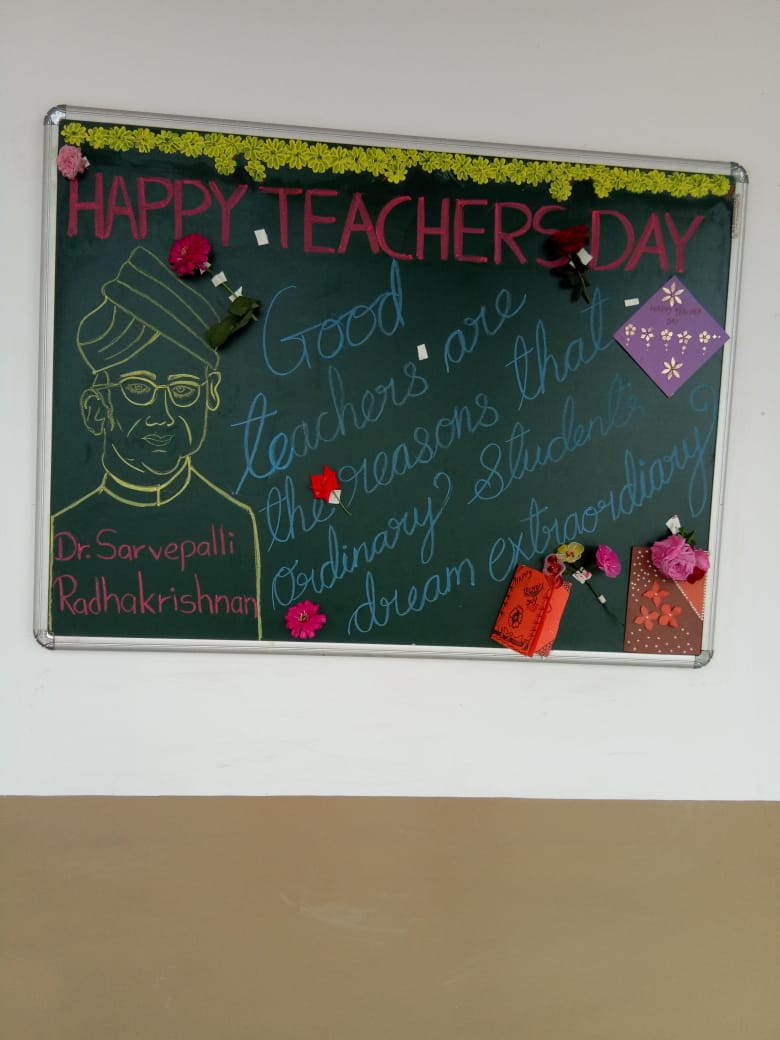 HAPPY TEACHERS DAY
Good
teachers are
the reasons that
ordinary students
dream extraordiary
Dr. Sarvepalli
Radhakrishnan
HAPPY TEACHER
DAY